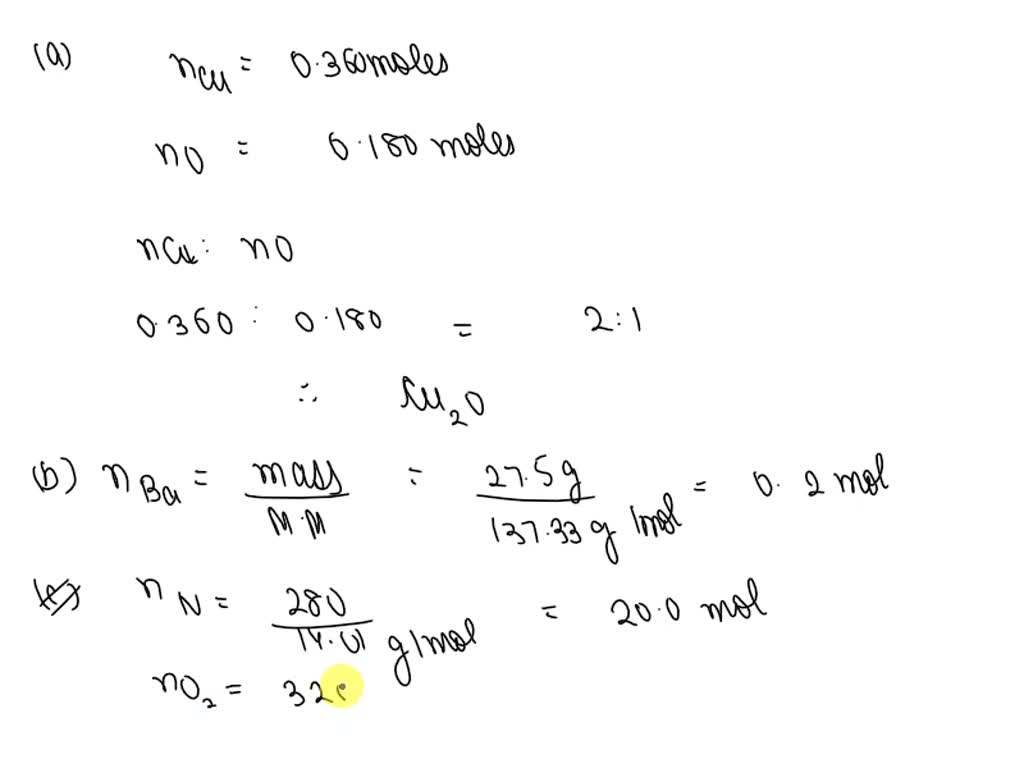 (a) nCu = 0.360moles
nO = 0.180 moles
nCu : nO
0.360 : 0.180 = 2:1
∴ Cu₂O
(b) nBa = mass / M.M = 27.5g / 137.33 g/mol = 0.2 mol
nN = 280 / 14.01 g/mol = 20.0 mol
nO₂ = 32